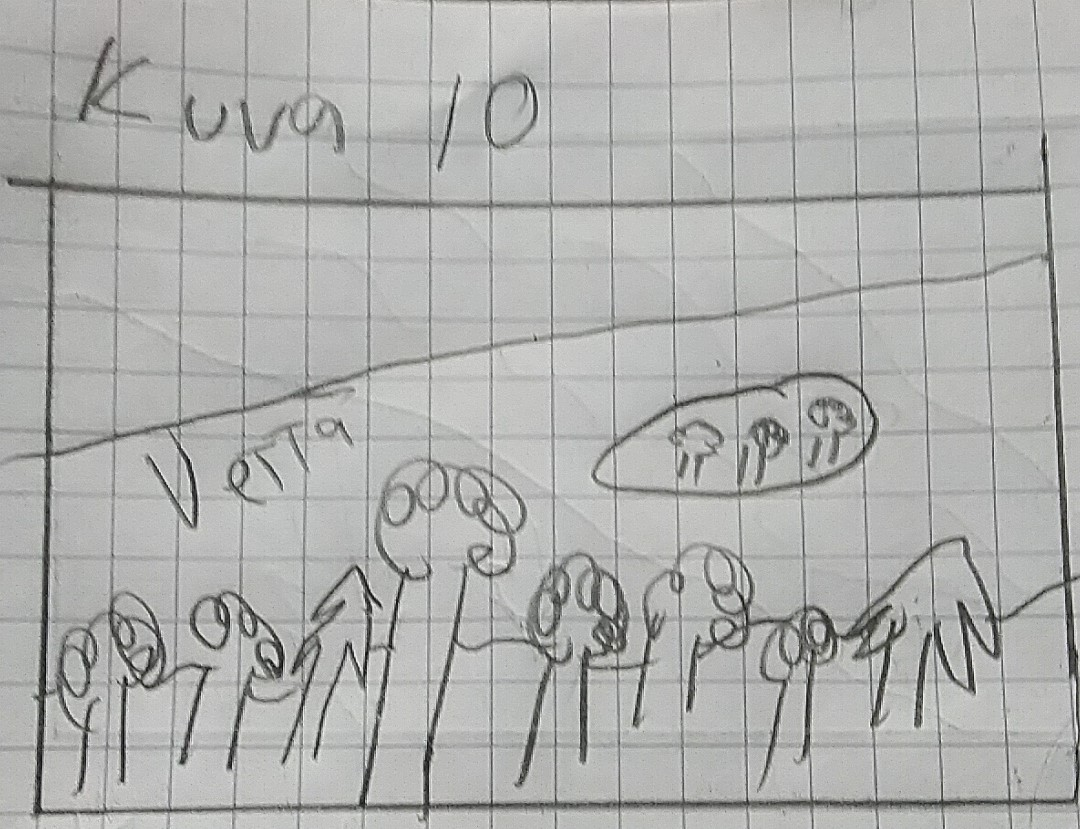 Kuva 10
Vetta